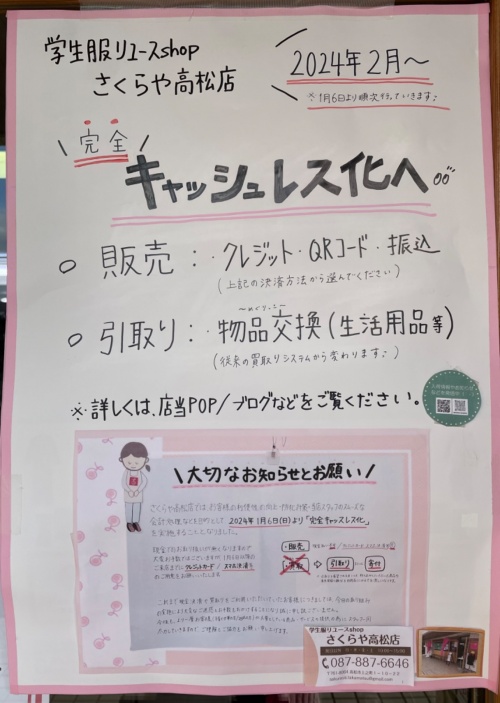 学生服リユースshop
さくらや高松店
2024年2月～
※1月6日より順次行っていきます♪
完全
キャッシュレス化へ
○ 販売：・クレジット・QRコード・振込
（上記の決済方法から選んでください）
～めぐりっこ～
○ 引取り：・物品交換（生活用品等）
（従来の買取りシステムから変わります♪）
※詳しくは、店当POP/ブログなどをご覧ください。
大切なお知らせとお願い
さくらや高松店では、お客様の利便性の向上・
会計処理などを目的として 2024年1月6日(日)より「完全キャッスレス化」
を実施することとなりました。
クレジットカード / スマホ決済
のご利用をお願いいたします
・販売
買取
引取り
寄付
学生服リユースshop
さくらや高松店
087-887-6646